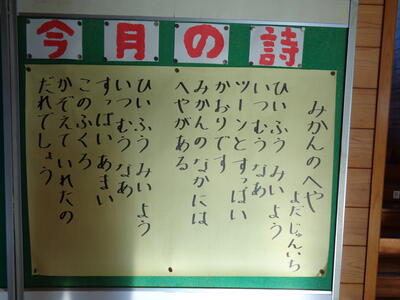 今月の詩
みかんのへや
よだじゅんいち
ひい ふう みい よう
いつ むう なあ
ツーンとすっぱい
かおりです
みかんのなかには
へやがある
ひい ふう みい よう
いつ むう なあ
すっぱい あまい
このふくろ
かぞえていれたの
だれでしょう